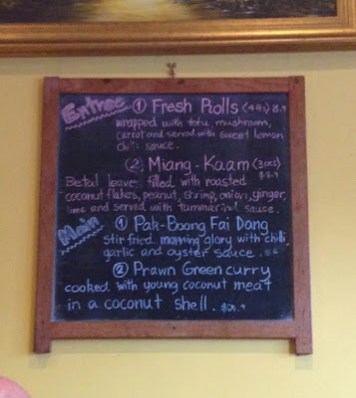 Entree ① Fresh Rolls
wrapped with tofu, mushroom,
carrot and served with sweet lemon
chilli sauce.
② Miang-Kaam (3pcs)
Betal leaves filled with roasted
coconut flakes, peanut, shrimp, onion, ginger,
lime and served with tammarind sauce.
Main ① Pak-Boong Fai Dang
stir fried morning glory with chilli,
garlic and oyster sauce.
② Prawn Green curry
cooked with young coconut meat
in a coconut shell.